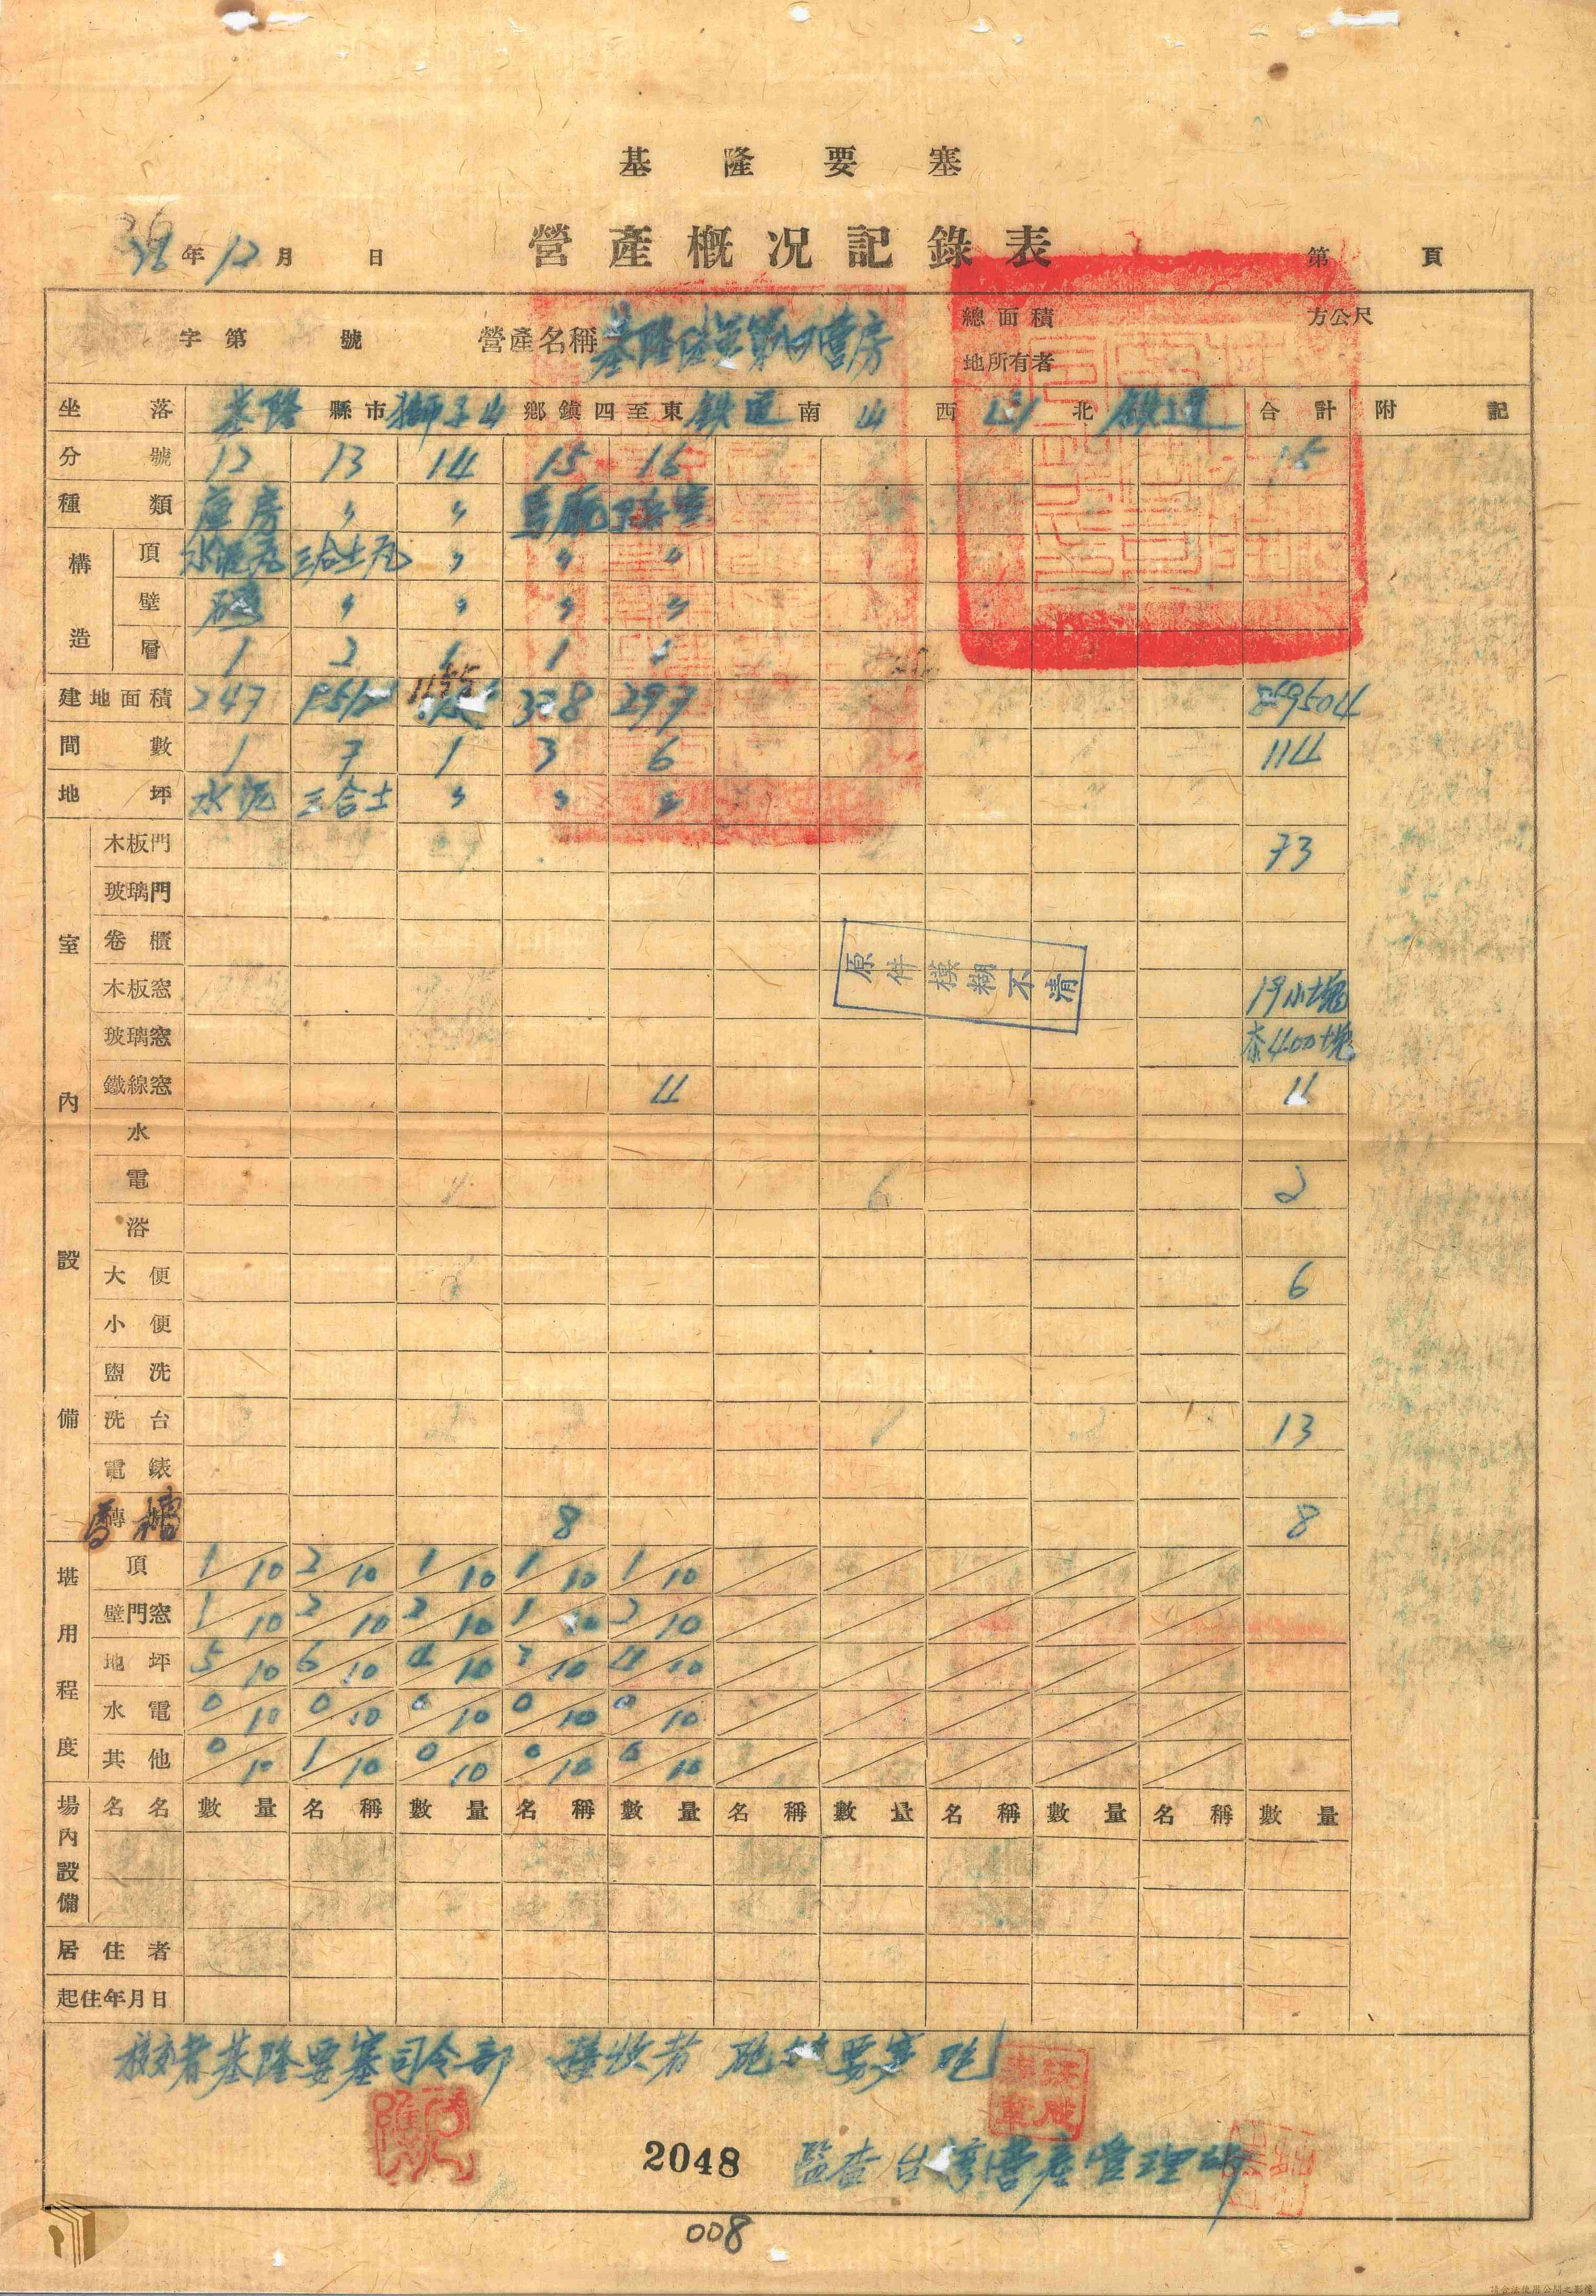 基隆要塞
營產概況記錄表
年12月 日
第 頁
字第 號 營產名稱 基隆 營房 總面積 方公尺
地所有者
坐落 基隆 縣市 獅子山 鄉鎮四至東 鉄道 南 山 西 山 北 鉄道 合計 附記
分號 12 13 14 15 16 15
種類 庫房 〃 〃 馬廐
構造 頂 水泥瓦 三合土瓦 〃 〃 〃
壁 磚 〃 〃 〃 〃
層 1 2 1 1 1
建地面積 247 297
間數 1 7 1 3 6 114
地坪 水泥 三合土 〃 〃 〃
室內設備 木板門 73
玻璃門
卷櫃
木板窓 19小塊
玻璃窓 400塊
鐵線窓 4 4
水
電 2
浴
大便 6
小便
盥洗
洗台 13
電錶
8 8
堪用程度 頂 1/10 2/10 1/10 1/10 1/10
壁門窓 1/10 2/10 2/10 1/10 2/10
地坪 5/10 6/10 4/10 3/10 4/10
水電 0/10 0/10 0/10 0/10 0/10
其他 0/10 1/10 0/10 0/10 0/10
場內設備 名名 數量 名稱 數量 名稱 數量 名稱 數量 名稱 數量 名稱 數量
居住者
起住年月日
移交者基隆要塞司令部 接收者 要塞
監查台灣營產管理所
2048
008
原件模糊不清